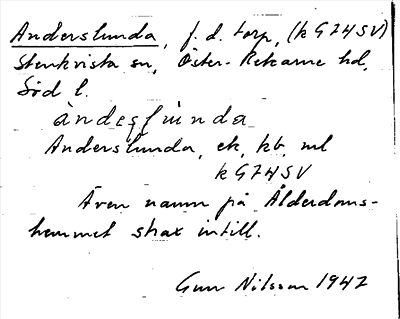 Anderslunda, f.d. torp, (k G74SV)
Stenkvista sn, Öster-Rekarne hd,
Söd l.
àndeşlúnda
Anderslunda, ek, kb, ml
k G74SV
Även namn på Ålderdoms-
hemmet strax intill.
Gun Nilsson 1947